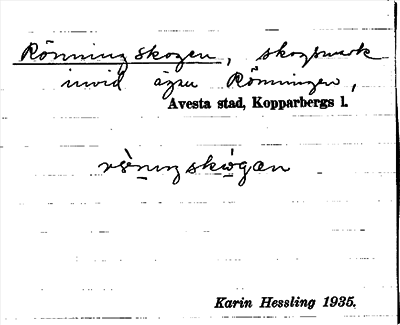 Rönningskogen, skogsmark
invid ägan Rönningen,
Avesta stad, Kopparbergs l.
rèningskógan
Karin Hessling 1935.